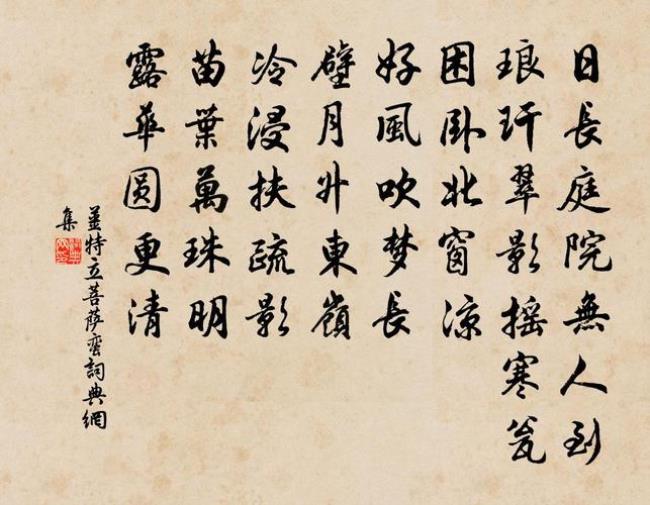 日長庭院無人到
琅玕翠影摇寒瓮
困卧北窗凉
好風吹梦長
璧月升東嶺
冷浸扶疏影
苗葉萬珠明
露華圓更清
薑特立菩萨蛮詞典網
集